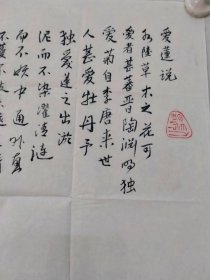 爱莲说
水陆草木之花可
爱者甚蕃晋陶渊明独
爱菊自李唐来世
人甚爱牡丹予
独爱莲之出淤
泥而不染濯清涟
而不妖中通外直